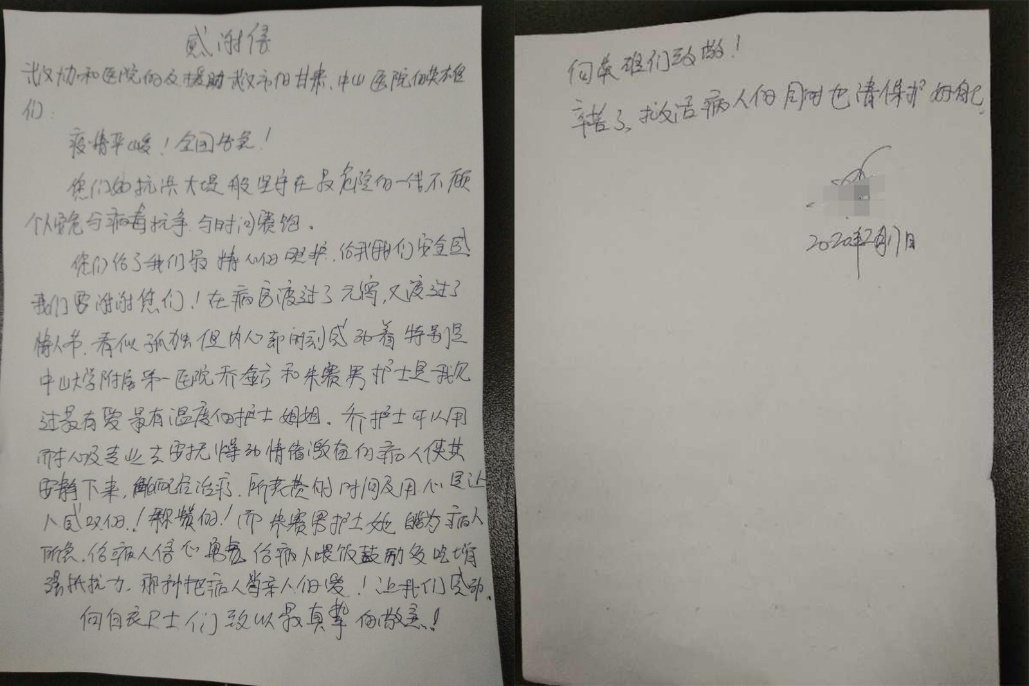 感谢信
武汉协和医院的及援助武汉市的甘肃、中山医院的英雄
们:
疫情严峻！全国告急！
您们如抗洪大堤般坚守在最危险的一线不顾
个人安危与病毒抗争 与时间赛跑。
您们给了我们最精心的照护，给我们安全感
我们要谢谢您们！在病房度过了元宵，又度过了
情人节，看似孤独 但内心却时刻感动着 特别是
中山大学附属第一医院乔 和朱赛男护士是我见
过最有爱 最有温度的护士姐姐。乔护士中以用
耐心及专业去安抚燥动情绪激 的病人使其
安静下来，配合治疗，所花费的时间及用心是让
人感叹的！称赞的！而朱赛男护士她 能为病人
所急，给病人信心 勇气 给病人喂饭鼓励多吃增
强抵抗力，那种把病人当亲人的爱！让我们感动。
向白衣卫士们致以最真挚的敬意！
向英雄们致敬！
辛苦了，救治病人的同时也请保护好自己
2020年2月17日